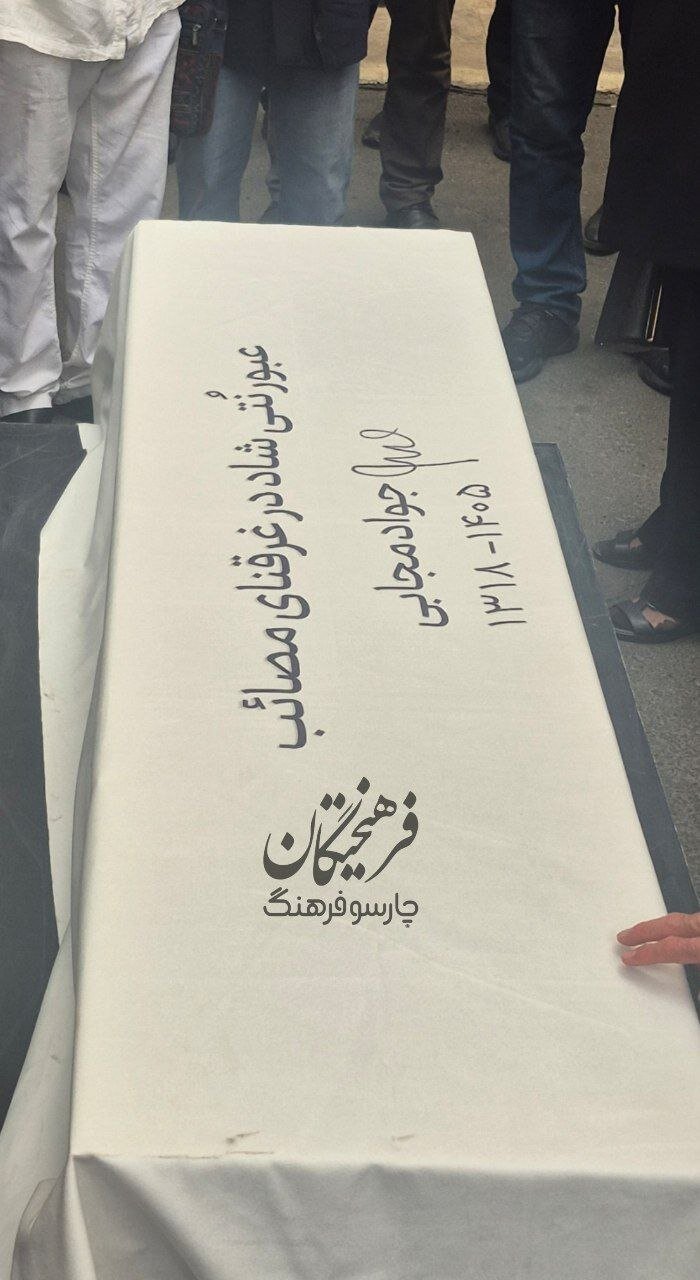 عبور نُتی شاد در غرقنای مصائب
جواد مجابی
۱۳۱۸ - ۱۴۰۵
فرهیختگان
چارسو فرهنگ